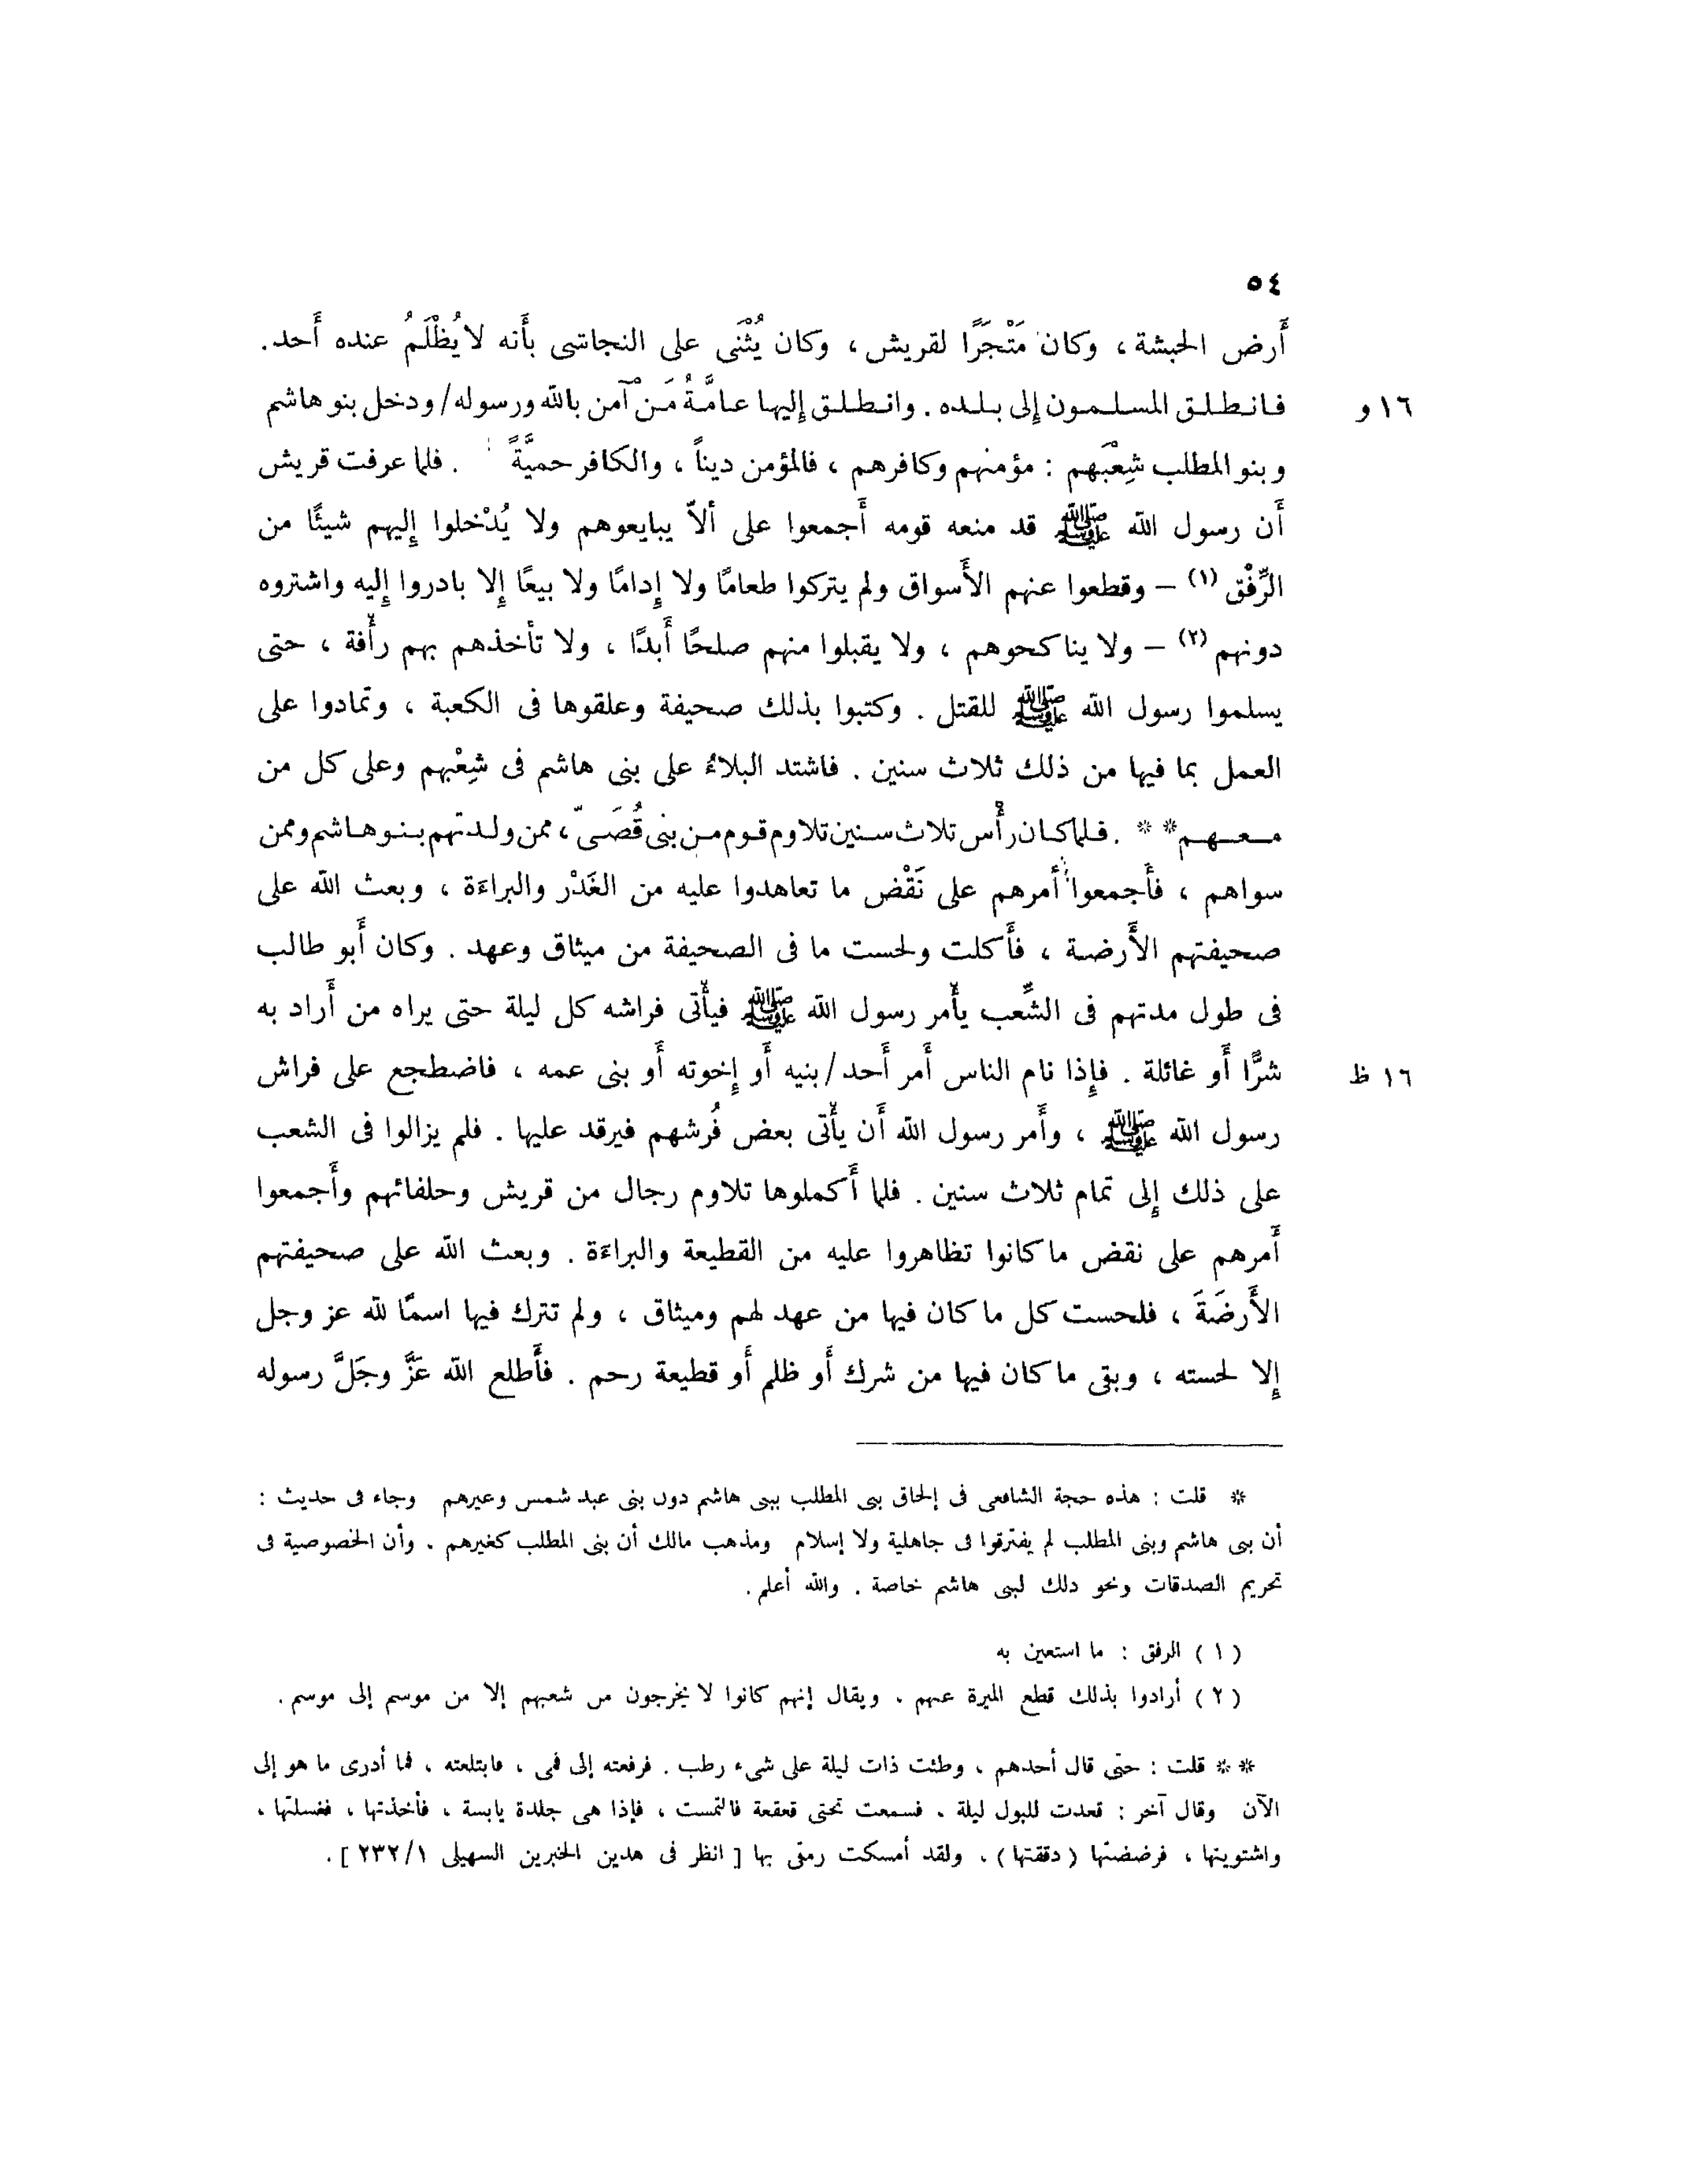 ٥٤
أَرض الحبشة ، وكان مَتْجَرًا لقريش ، وكان يُثْنَى على النجاشى بأَنه لا يُظْلَمُ عنده أَحد .
فانطلق المسلمون إِلى بلده . وانطلق إِليها عامَّةُ مَنْ آمن بالله ورسوله / ودخل بنو هاشم
١٦ و
وبنو المطلب شِعْبَهم : مؤمنهم وكافرهم ، فالمؤمن ديناً ، والكافر حميَّةً . فلما عرفت قريش
أَن رسول الله ﷺ قد منعه قومه أَجمعوا على ألاّ يبايعوهم ولا يُدْخلوا إِليهم شيئًا من
الرِّفْق (١) – وقطعوا عنهم الأَسواق ولم يتركوا طعامًا ولا إِدامًا ولا بيعًا إِلا بادروا إِليه واشتروه
دونهم (٢) – ولا يناكحوهم ، ولا يقبلوا منهم صلحًا أَبدًا ، ولا تأخذهم بهم رأْفة ، حتى
يسلموا رسول الله ﷺ للقتل . وكتبوا بذلك صحيفة وعلقوها فى الكعبة ، وتمادوا على
العمل بما فيها من ذلك ثلاث سنين . فاشتد البلاءُ على بنى هاشم فى شِعْبهم وعلى كل من
معهم** . فلما كان رأْس ثلاث سنين تلاوم قوم من بنى قُصَىّ ، ممن ولدتهم بنو هاشم وممن
سواهم ، فأَجمعوا أمرهم على نَقْض ما تعاهدوا عليه من الغَدْر والبراءَة ، وبعث الله على
صحيفتهم الأَرضة ، فأَكلت ولحست ما فى الصحيفة من ميثاق وعهد . وكان أَبو طالب
فى طول مدتهم فى الشِّعب يأْمر رسول الله ﷺ فيأْتى فراشه كل ليلة حتى يراه من أَراد به
شرًّا أَو غائلة . فإِذا نام الناس أَمر أَحد / بنيه أَو إِخوته أَو بنى عمه ، فاضطجع على فراش
١٦ ظ
رسول الله ﷺ ، وأَمر رسول الله أَن يأْتى بعض فُرشهم فيرقد عليها . فلم يزالوا فى الشعب
على ذلك إِلى تمام ثلاث سنين . فلما أَكملوها تلاوم رجال من قريش وحلفائهم وأَجمعوا
أَمرهم على نقض ما كانوا تظاهروا عليه من القطيعة والبراءَة . وبعث الله على صحيفتهم
الأَرضَةَ ، فلحست كل ما كان فيها من عهد لهم وميثاق ، ولم تترك فيها اسمًا لله عز وجل
إِلا لحسته ، وبقى ما كان فيها من شرك أَو ظلم أَو قطيعة رحم . فأَطلع الله عَزَّ وجَلَّ رسوله
* قلت : هذه حجة الشافعى فى إلحاق بنى المطلب ببنى هاشم دون بنى عبد شمس وغيرهم وجاء فى حديث :
أن بنى هاشم وبنى المطلب لم يفترقوا فى جاهلية ولا إسلام ومذهب مالك أن بنى المطلب كغيرهم . وأن الخصوصية فى
تحريم الصدقات ونحو ذلك لبنى هاشم خاصة . والله أعلم .
( ١ ) الرفق : ما استعين به
( ٢ ) أرادوا بذلك قطع الميرة عنهم . ويقال إنهم كانوا لا يخرجون من شعبهم إلا من موسم إلى موسم .
** قلت : حتى قال أحدهم ، وطئت ذات ليلة على شىء رطب . فرفعته إلى فمى ، فابتلعته ، فما أدرى ما هو إلى
الآن وقال آخر : قعدت للبول ليلة . فسمعت تحتى قعقعة فالتمست ، فإذا هى جلدة يابسة ، فأخذتها ، فغسلتها ،
واشتويتها ، فرضضتها ( دققتها ) . ولقد أمسكت رمقى بها [ انظر فى هدين الخبرين السهيلى ٢٣٢/١ ] .